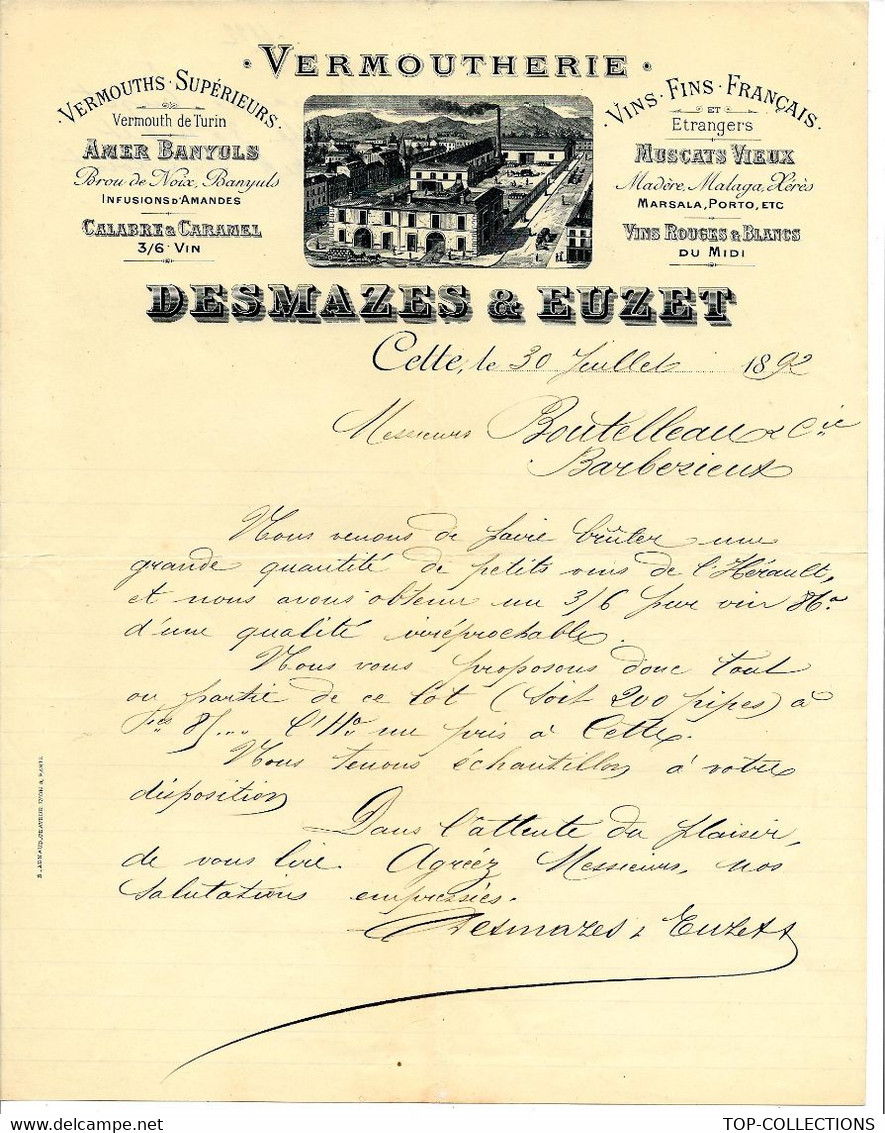 · VERMOUTHERIE ·
· VERMOUTHS · SUPÉRIEURS ·
Vermouth de Turin
AMER BANYULS
Brou de Noix, Banyuls
INFUSIONS D'AMANDES
CALABRE & CARAMEL
3/6 · VIN
· VINS · FINS · FRANÇAIS ·
ET
Etrangers
MUSCATS VIEUX
Madère, Malaga, Xérès
MARSALA, PORTO, ETC
VINS ROUGES & BLANCS
DU MIDI
DESMAZES & EUZET
Cette, le 30 Juillet 1892
Messieurs Boutelleau & Cie
Barbezieux
Nous venons de faire brûler une
grande quantité de petits vins de l'Hérault,
et nous avons obtenu un 3/6 pur vin 86°
d'une qualité irréprochable.
Nous vous proposons donc tout
ou partie de ce lot (soit 200 pipes) à
l'Ho nu pris à Cette.
Nous tenons échantillon à votre
disposition
Dans l'attente du plaisir,
de vous lire. Agréez Messieurs, nos
salutations empressées.
Desmazes & Euzet
TOP-COLLECTIONS